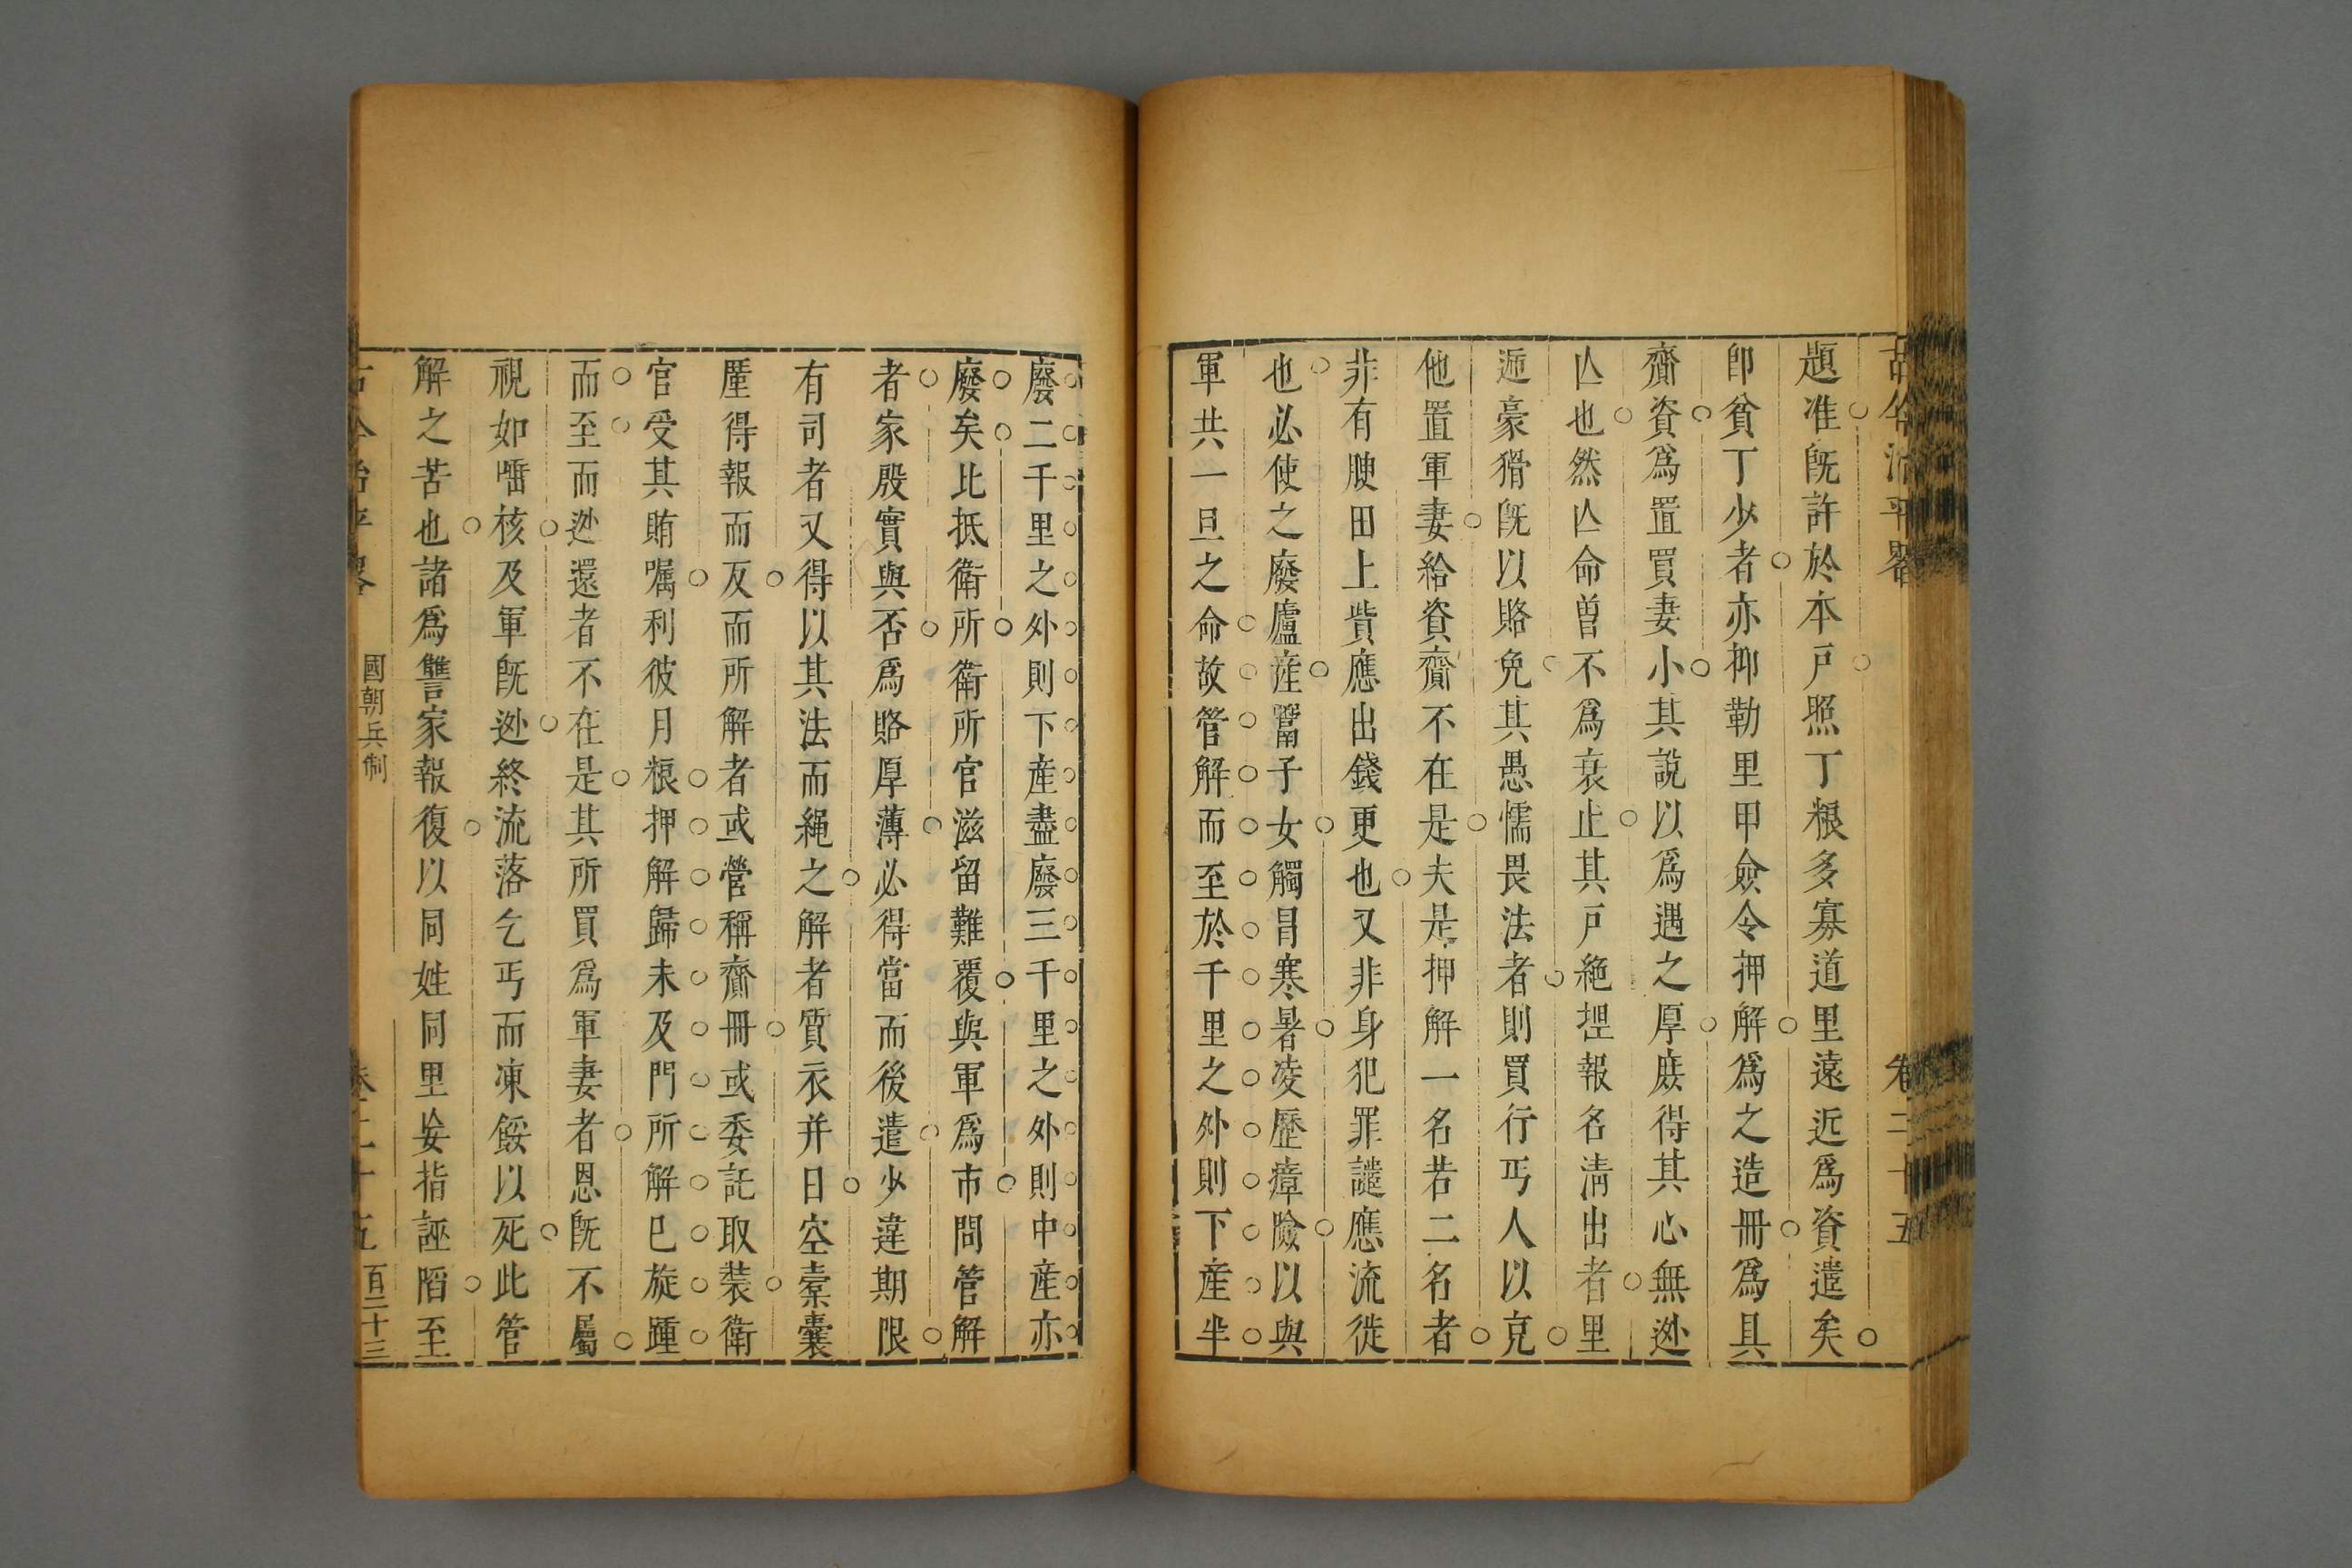 古今治平畧 卷二十五
題准旣許於本戸照丁粮多寡道里遠近爲資遣矣
卽貧丁少者亦抑勒里甲僉令押解爲之造冊爲具
齎資爲置買妻小其說以爲遇之厚庶得其心無迯
亾也然亾命曽不爲衰止其戸絶揑報名淸出者里
遞豪猾旣以賂免其愚懦畏法者則買行丐人以克
他置軍妻給資齎不在是夫是押解一名若二名者
非有腴田上貲應出錢更也又非身犯罪譴應流徙
也必使之廢廬產鬻子女觸冒寒暑凌歷瘴險以與
軍共一旦之命故管解而至於千里之外則下産半
廢二千里之外則下産盡廢三千里之外則中産亦
廢矣比抵衛所衛所官滋留難覆與軍爲市問管解
者家殷實與否爲賂厚薄必得當而後遣少違期限
有司者又得以其法而繩之解者質衣并日空橐囊
厪得報而反而所解者或營稱齎冊或委託取裝衛
官受其賄嘱利彼月粮押解歸未及門所解巳旋踵
而至而迯還者不在是其所買爲軍妻者恩旣不屬
視如噃核及軍旣迯終流落乞丐而凍餒以死此管
解之苦也諸爲讐家報復以同姓同里妄指誣陷至
古今治平畧 國朝兵制 卷二十五 百二十三